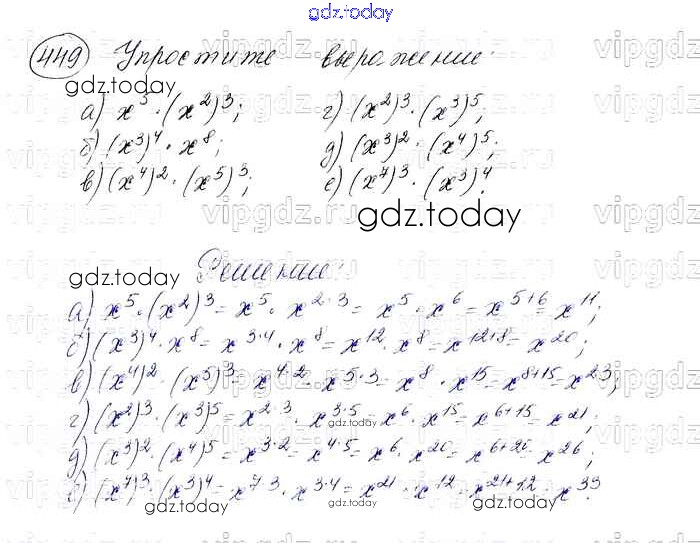 gdz.today
449 Упростите выражение
gdz.today
а) x⁵·(x²)³; г) (x²)³·(x³)⁵;
б) (x³)⁴·x⁸; д) (x³)²·(x⁴)⁵;
в) (x⁴)²·(x⁵)³; е) (x⁷)³·(x³)⁴.
gdz.today
gdz.today Решение:
а) x⁵·(x²)³ = x⁵·x²·³ = x⁵·x⁶ = x⁵⁺⁶ = x¹¹;
б) (x³)⁴·x⁸ = x³·⁴·x⁸ = x¹²·x⁸ = x¹²⁺⁸ = x²⁰;
в) (x⁴)²·(x⁵)³ = x⁴·²·x⁵·³ = x⁸·x¹⁵ = x⁸⁺¹⁵ = x²³;
г) (x²)³·(x³)⁵ = x²·³·x³·⁵ = x⁶·x¹⁵ = x⁶⁺¹⁵ = x²¹;
gdz.today
д) (x³)²·(x⁴)⁵ = x³·² = x⁴·⁵ = x⁶·x²⁰ = x⁶⁺²⁰ = x²⁶;
е) (x⁷)³·(x³)⁴ = x⁷·³·x³·⁴ = x²¹·x¹² = x²¹⁺¹² = x³³
gdz.today gdz.today